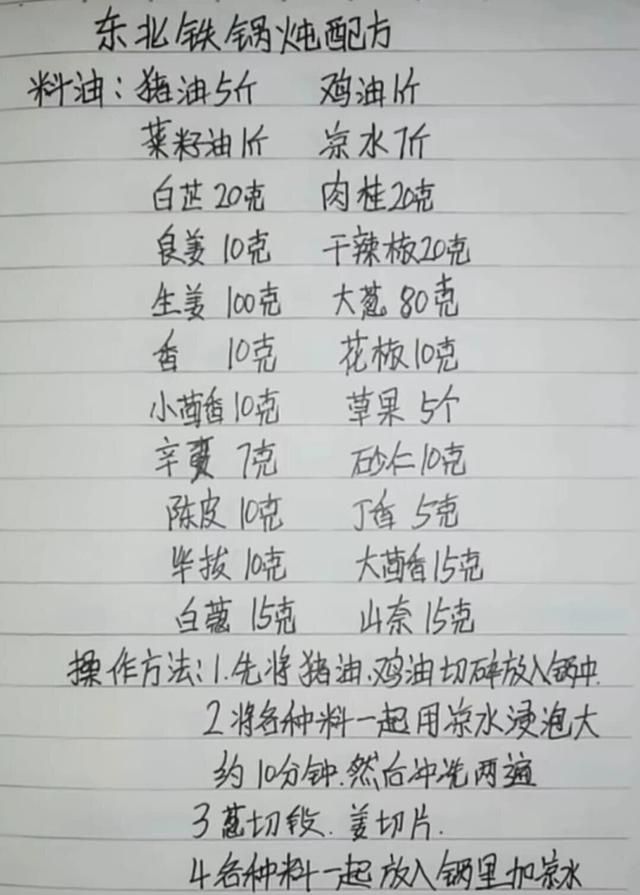 东北铁锅炖配方
料油：猪油5斤 鸡油1斤
菜籽油1斤 凉水7斤
白芷20克 肉桂20克
良姜10克 干辣椒20克
生姜100克 大葱80克
香 10克 花椒10克
小茴香10克 草果5个
辛夷7克 砂仁10克
陈皮10克 丁香5克
毕拔10克 大茴香15克
白蔻15克 山奈15克
操作方法：1.先将猪油.鸡油切碎放入锅中.
2将各种料一起用凉水浸泡大
约10分钟.然后冲洗两遍
3葱切段.姜切片.
4各种料一起放入锅里加凉水